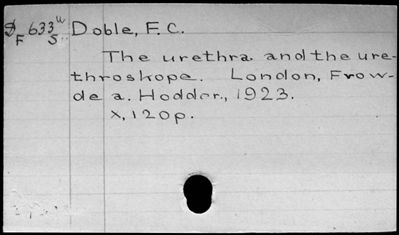 633 u Doble, F. C.
F S..
The urethra and the ure-
throskope. London, Frow-
de a. Hodder., 1923.
x, 120p.